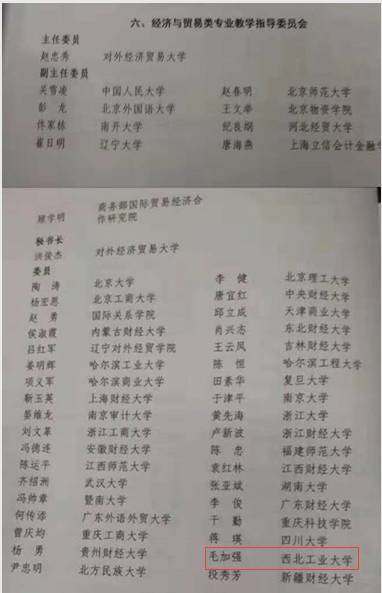 六、经济与贸易类专业教学指导委员会
主任委员
赵忠秀 对外经济贸易大学
副主任委员
关雪凌 中国人民大学 赵春明 北京师范大学
彭 龙 北京外国语大学 王文举 北京物资学院
佟家栋 南开大学 纪良纲 河北经贸大学
崔日明 辽宁大学 唐海燕 上海立信会计金融学
顾学明 商务部国际贸易经济合
作研究院
秘书长
洪俊杰 对外经济贸易大学
委员
陶 涛 北京大学 李 健 北京理工大学
杨宏恩 北京工商大学 唐宜红 中央财经大学
赵 勇 国际关系学院 邱立成 天津商业大学
侯淑霞 内蒙古财经大学 肖兴志 东北财经大学
吕红军 辽宁对外经贸学院 王云凤 吉林财经大学
姜明辉 哈尔滨工业大学 陈 恒 哈尔滨工程大学
项义军 哈尔滨商业大学 田素华 复旦大学
靳玉英 上海财经大学 于津平 南京大学
晏维龙 南京审计大学 黄先海 浙江大学
刘文革 浙江工商大学 卢新波 浙江财经大学
冯德连 安徽财经大学 陈 忠 福建师范大学
陈运平 江西师范大学 袁红林 江西财经大学
齐绍洲 武汉大学 张亚斌 湖南大学
冯帅章 暨南大学 李 俊 广东财经大学
何传添 广东外语外贸大学 干 勤 重庆科技学院
曾庆均 重庆工商大学 蒋 瑛 四川大学
杨 勇 贵州财经大学 毛加强 西北工业大学
尹忠明 北方民族大学 段秀芳 新疆财经大学